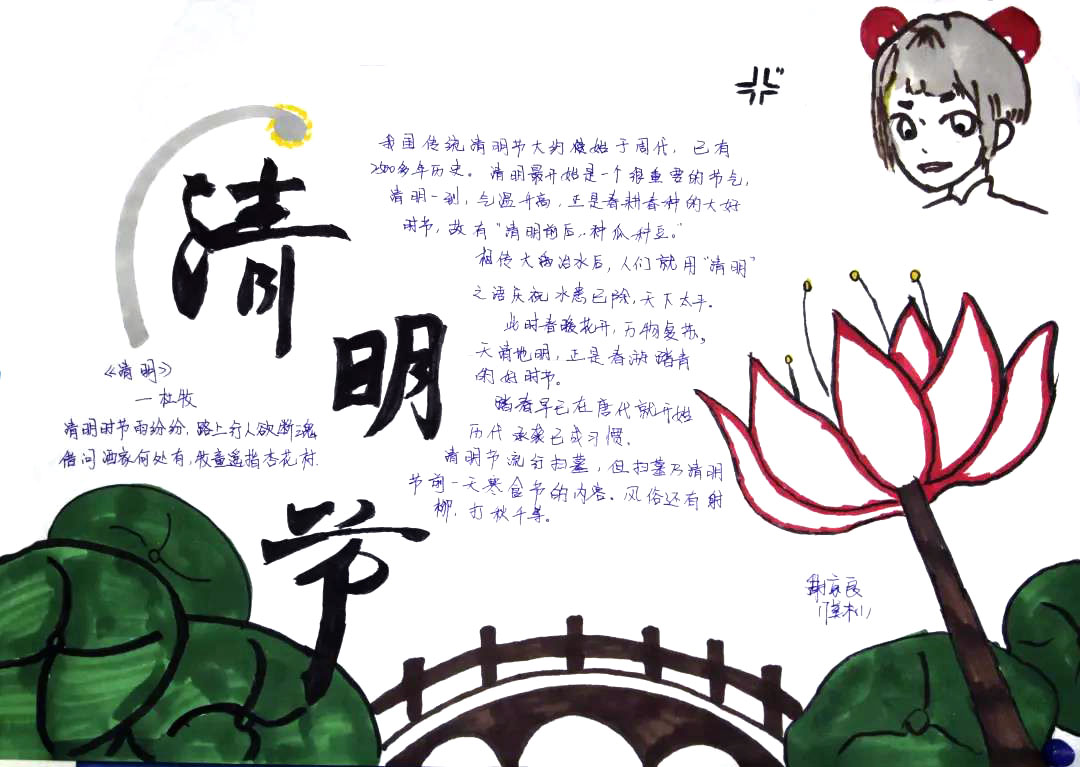 清
明
节
《清明》
一杜牧
清明时节雨纷纷,路上行人欲断魂
借问酒家何处有,牧童遥指杏花村.
我国传统清明节大约始于周代,已有
2500多年历史。清明最开始是一个很重要的节气,
清明一到,气温升高,正是春耕春种的大好
时节,故有"清明前后,种瓜种豆。"
相传大禹治水后,人们就用"清明"
之语庆祝水患已除,天下太平.
此时春暖花开,万物复苏。
天清地明,正是春游踏青
的好时节。
踏春早已在唐代就开始
历代承袭已成习惯.
清明节流行扫墓,但扫墓乃清明
节前一天寒食节的内容.风俗还有射
柳,打秋千等。